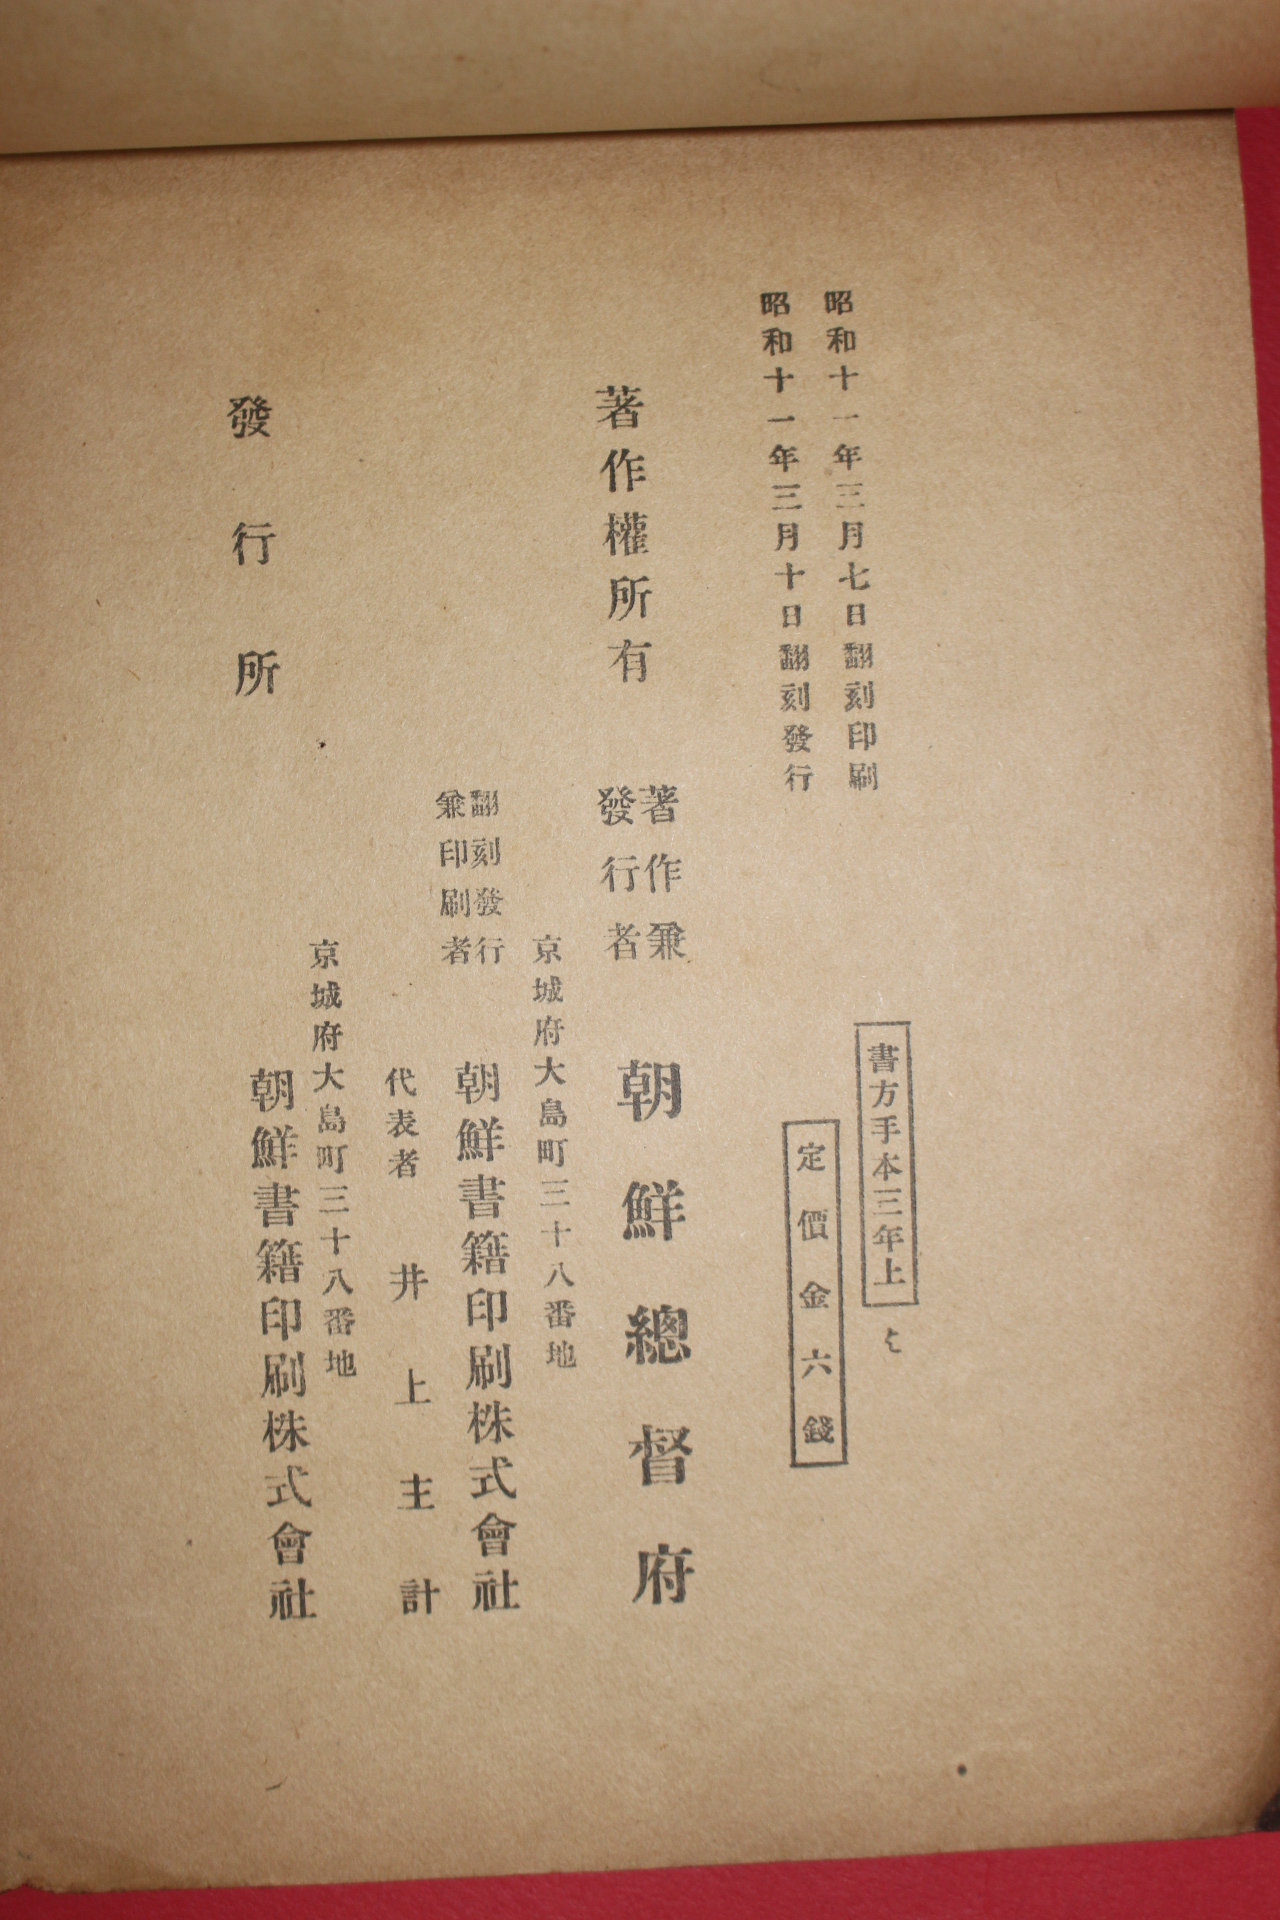 昭和十一年三月七日翻刻印刷
昭和十一年三月十日翻刻發行
書方手本三年上
定價金六錢
著作權所有
著作兼
發行者
朝鮮總督府
京城府大島町三十八番地
翻刻發行
兼印刷者
朝鮮書籍印刷株式會社
代表者 井上主計
京城府大島町三十八番地
發行所
朝鮮書籍印刷株式會社